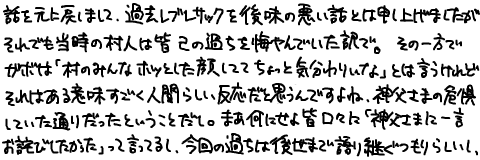 話を元に戻しまして、過去レブレサックを後味の悪い話とは申し上げましたが
それでも当時の村人は皆己の過ちを悔やんでいた訳で。その一方で
ガボは「村のみんなホッとした顔しててちょっと気分わりいな」とは言うけれど
それはある意味すごく人間らしい反応だと思うんですよね、神父さまの危惧
していた通りだったということだし。まあ何にせよ皆口々に「神父さまに一言
お詫びしたかった」って言ってるし、今回の過ちは後世まで語り継ぐつもりらしいし、